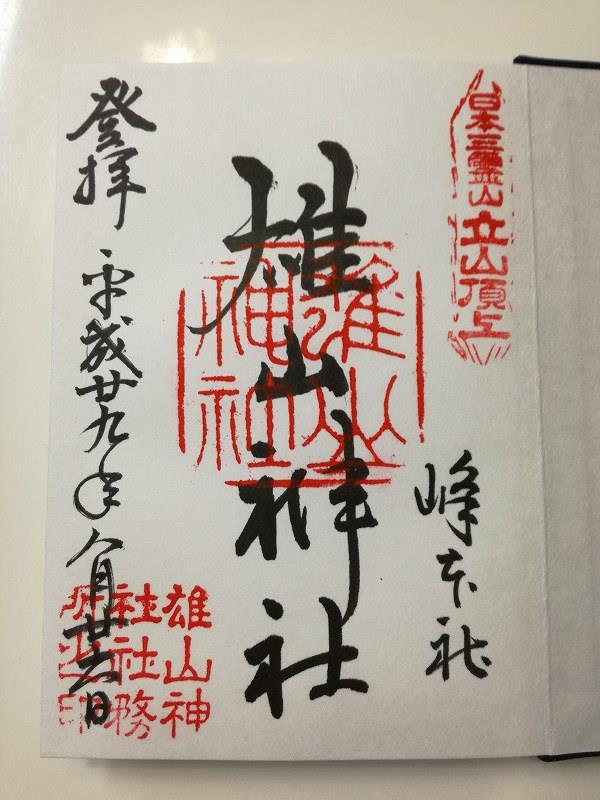 日本三霊山
立山頂上
峰本社
雄山神社
雄山神社
登拝
平成廿九年八月廿六日
雄山神
社社務
所之印